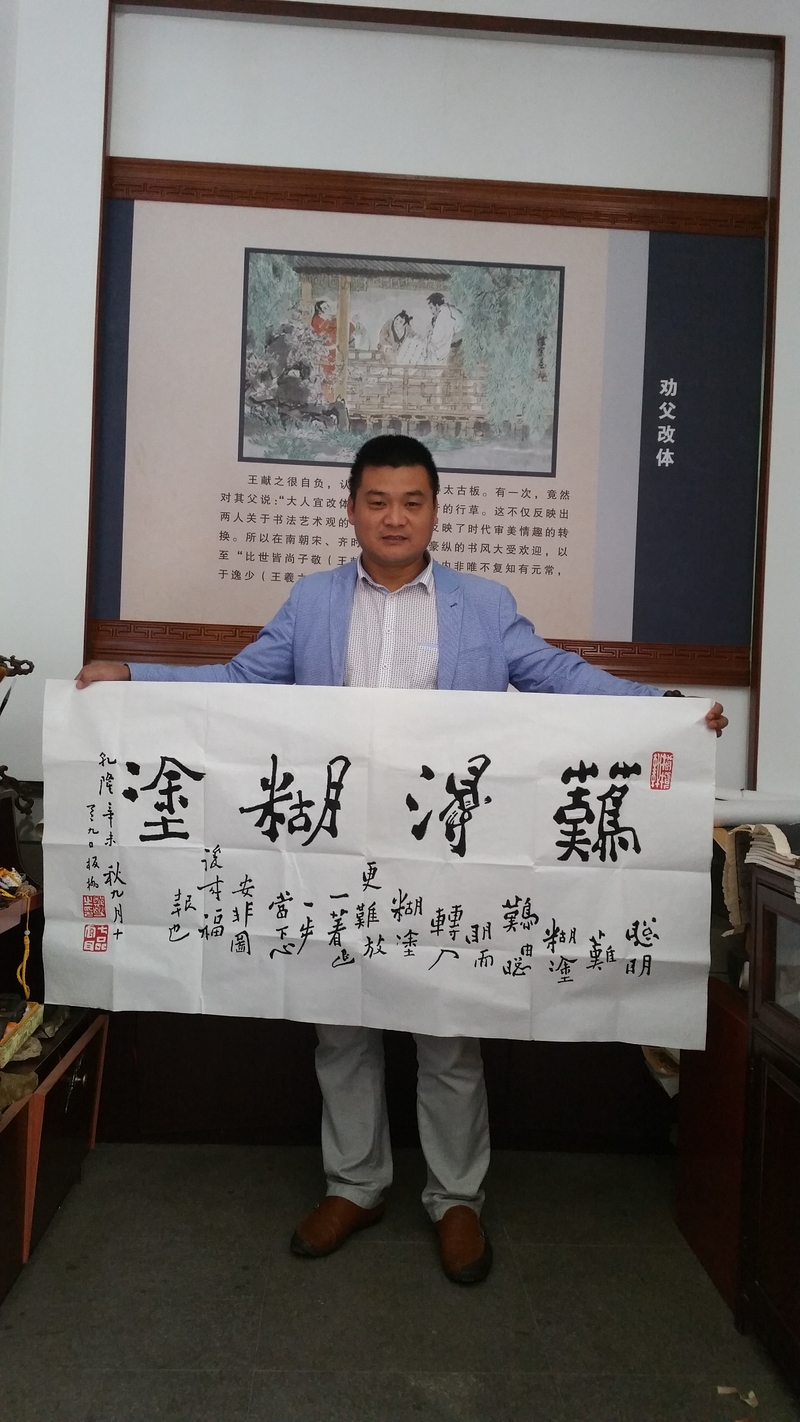 劝父改体
王献之很自负，认 太古板。有一次，竟然
对其父说：“大人宜改体 的行草。这不仅反映出
两人关于书法艺术观的 反映了时代审美情趣的转
换。所以在南朝宋、齐时 豪纵的书风大受欢迎，以
至“比世皆尚子敬（王 内非唯不复知有元常，
于逸少（王羲
難淂糊塗
聰明
難
糊塗
難由聰
明而
轉入
糊塗
更難放
一著退
一步
當下心
安非圖
後来福
報也
乹隆辛未秋九月十
九日板橋
七品官耳